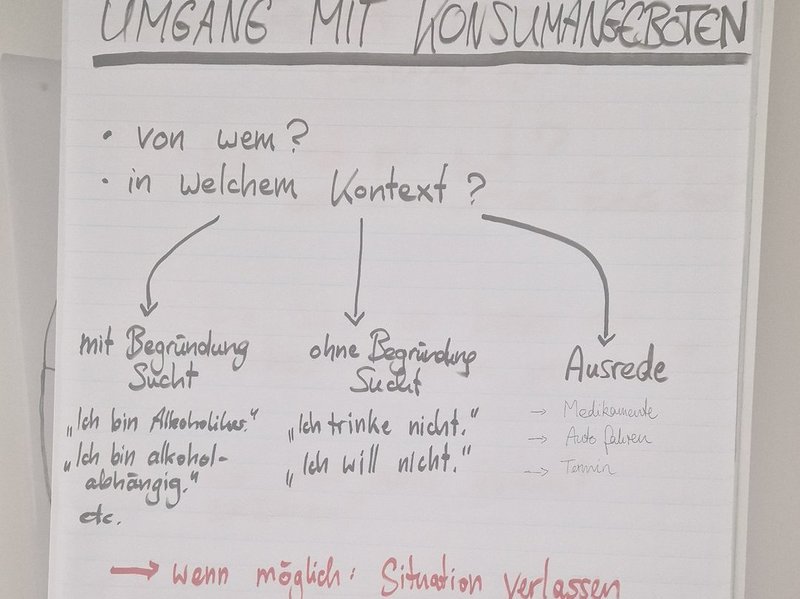 UMGANG MIT KONSUMANGEBOTEN
• von wem?
• in welchem Kontext?
mit Begründung
Sucht
„Ich bin Alkoholiker."
„Ich bin alkohol-
abhängig."
etc.
ohne Begründung
Sucht
„Ich trinke nicht."
„Ich will nicht."
Ausrede
→ Medikamente
→ Auto fahren
→ Termin
→ wenn möglich: Situation verlassen